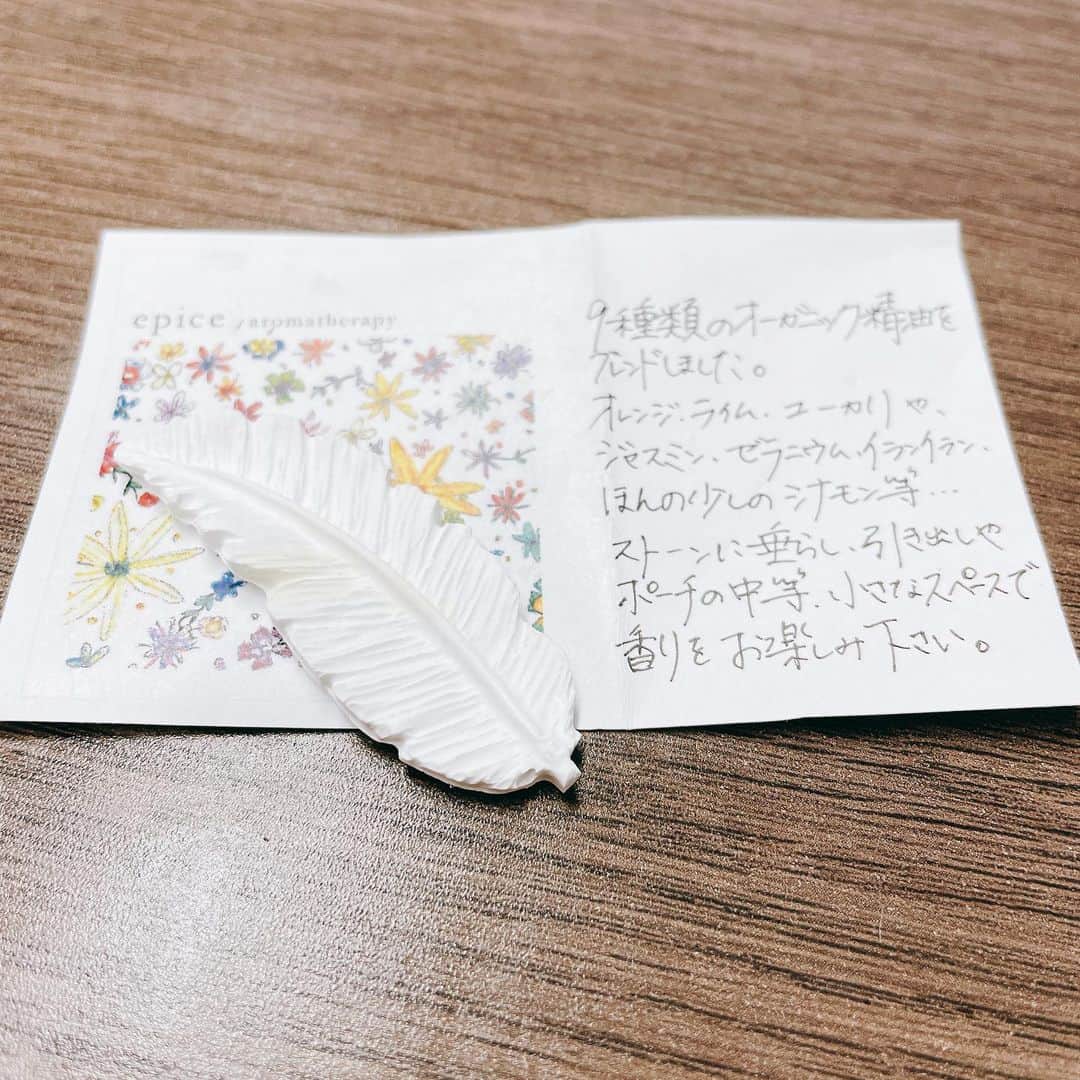 epice / aromatherapy
9種類のオーガニック精油を
ブレンドしました。
オレンジ、ライム、ユーカリや、
ジャスミン、ゼラニウム、イランイラン、
ほんの少しのシナモン等…
ストーンに垂らし、引き出しや
ポーチの中等、小さなスペースで
香りをお楽しみ下さい。